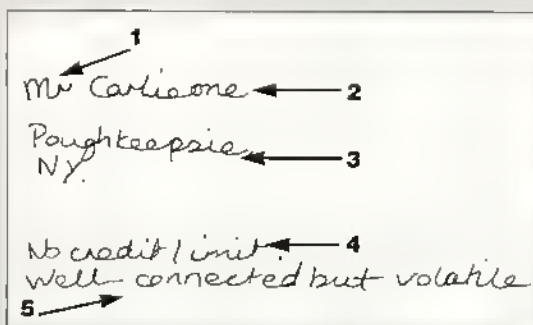 1
Mr Carlieone 2
Poughkeepsie 3
NY.
No credit limit 4
Well connected but volatile
5